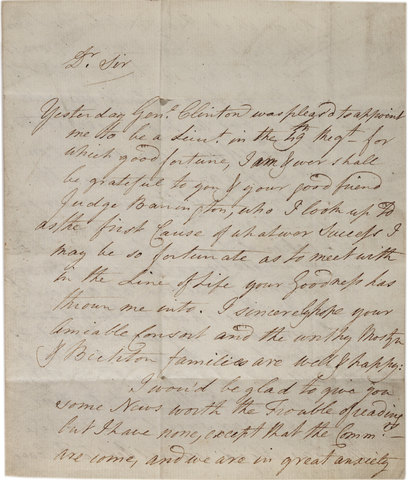 Dr. Sir
Yesterday Genl. Clinton was pleas'd to appoint
me to be a Lieut. in the Regt. for
which good fortune, I am & ever shall
be grateful to you & your good friend
Judge Barrington, who I look up to
as the first Cause of whatever Success I
may be so fortunate as to meet with
in the Line of Life your Goodness has
thrown me into. I sincerely hope your
amiable Consort and the worthy Mostyn
& families are well & happy:
I wou'd be glad to give you
some News worth the Trouble of reading
but I have none, except that the Commrs.
are come, and we are in great anxiety